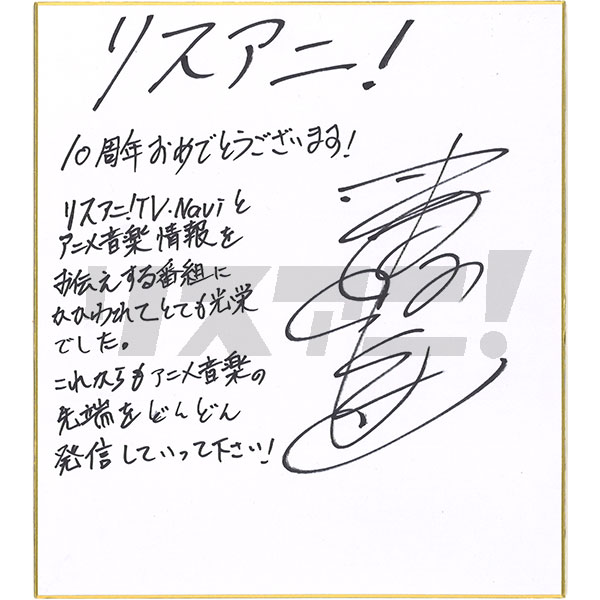 リスアニ！
10周年おめでとうございます！
リスアニ！TV・Naviと
アニメ音楽情報を
お伝えする番組に
かかわれてとても光栄
でした。
これからもアニメ音楽の
先端をどんどん
発信していって下さい！
リスアニ！